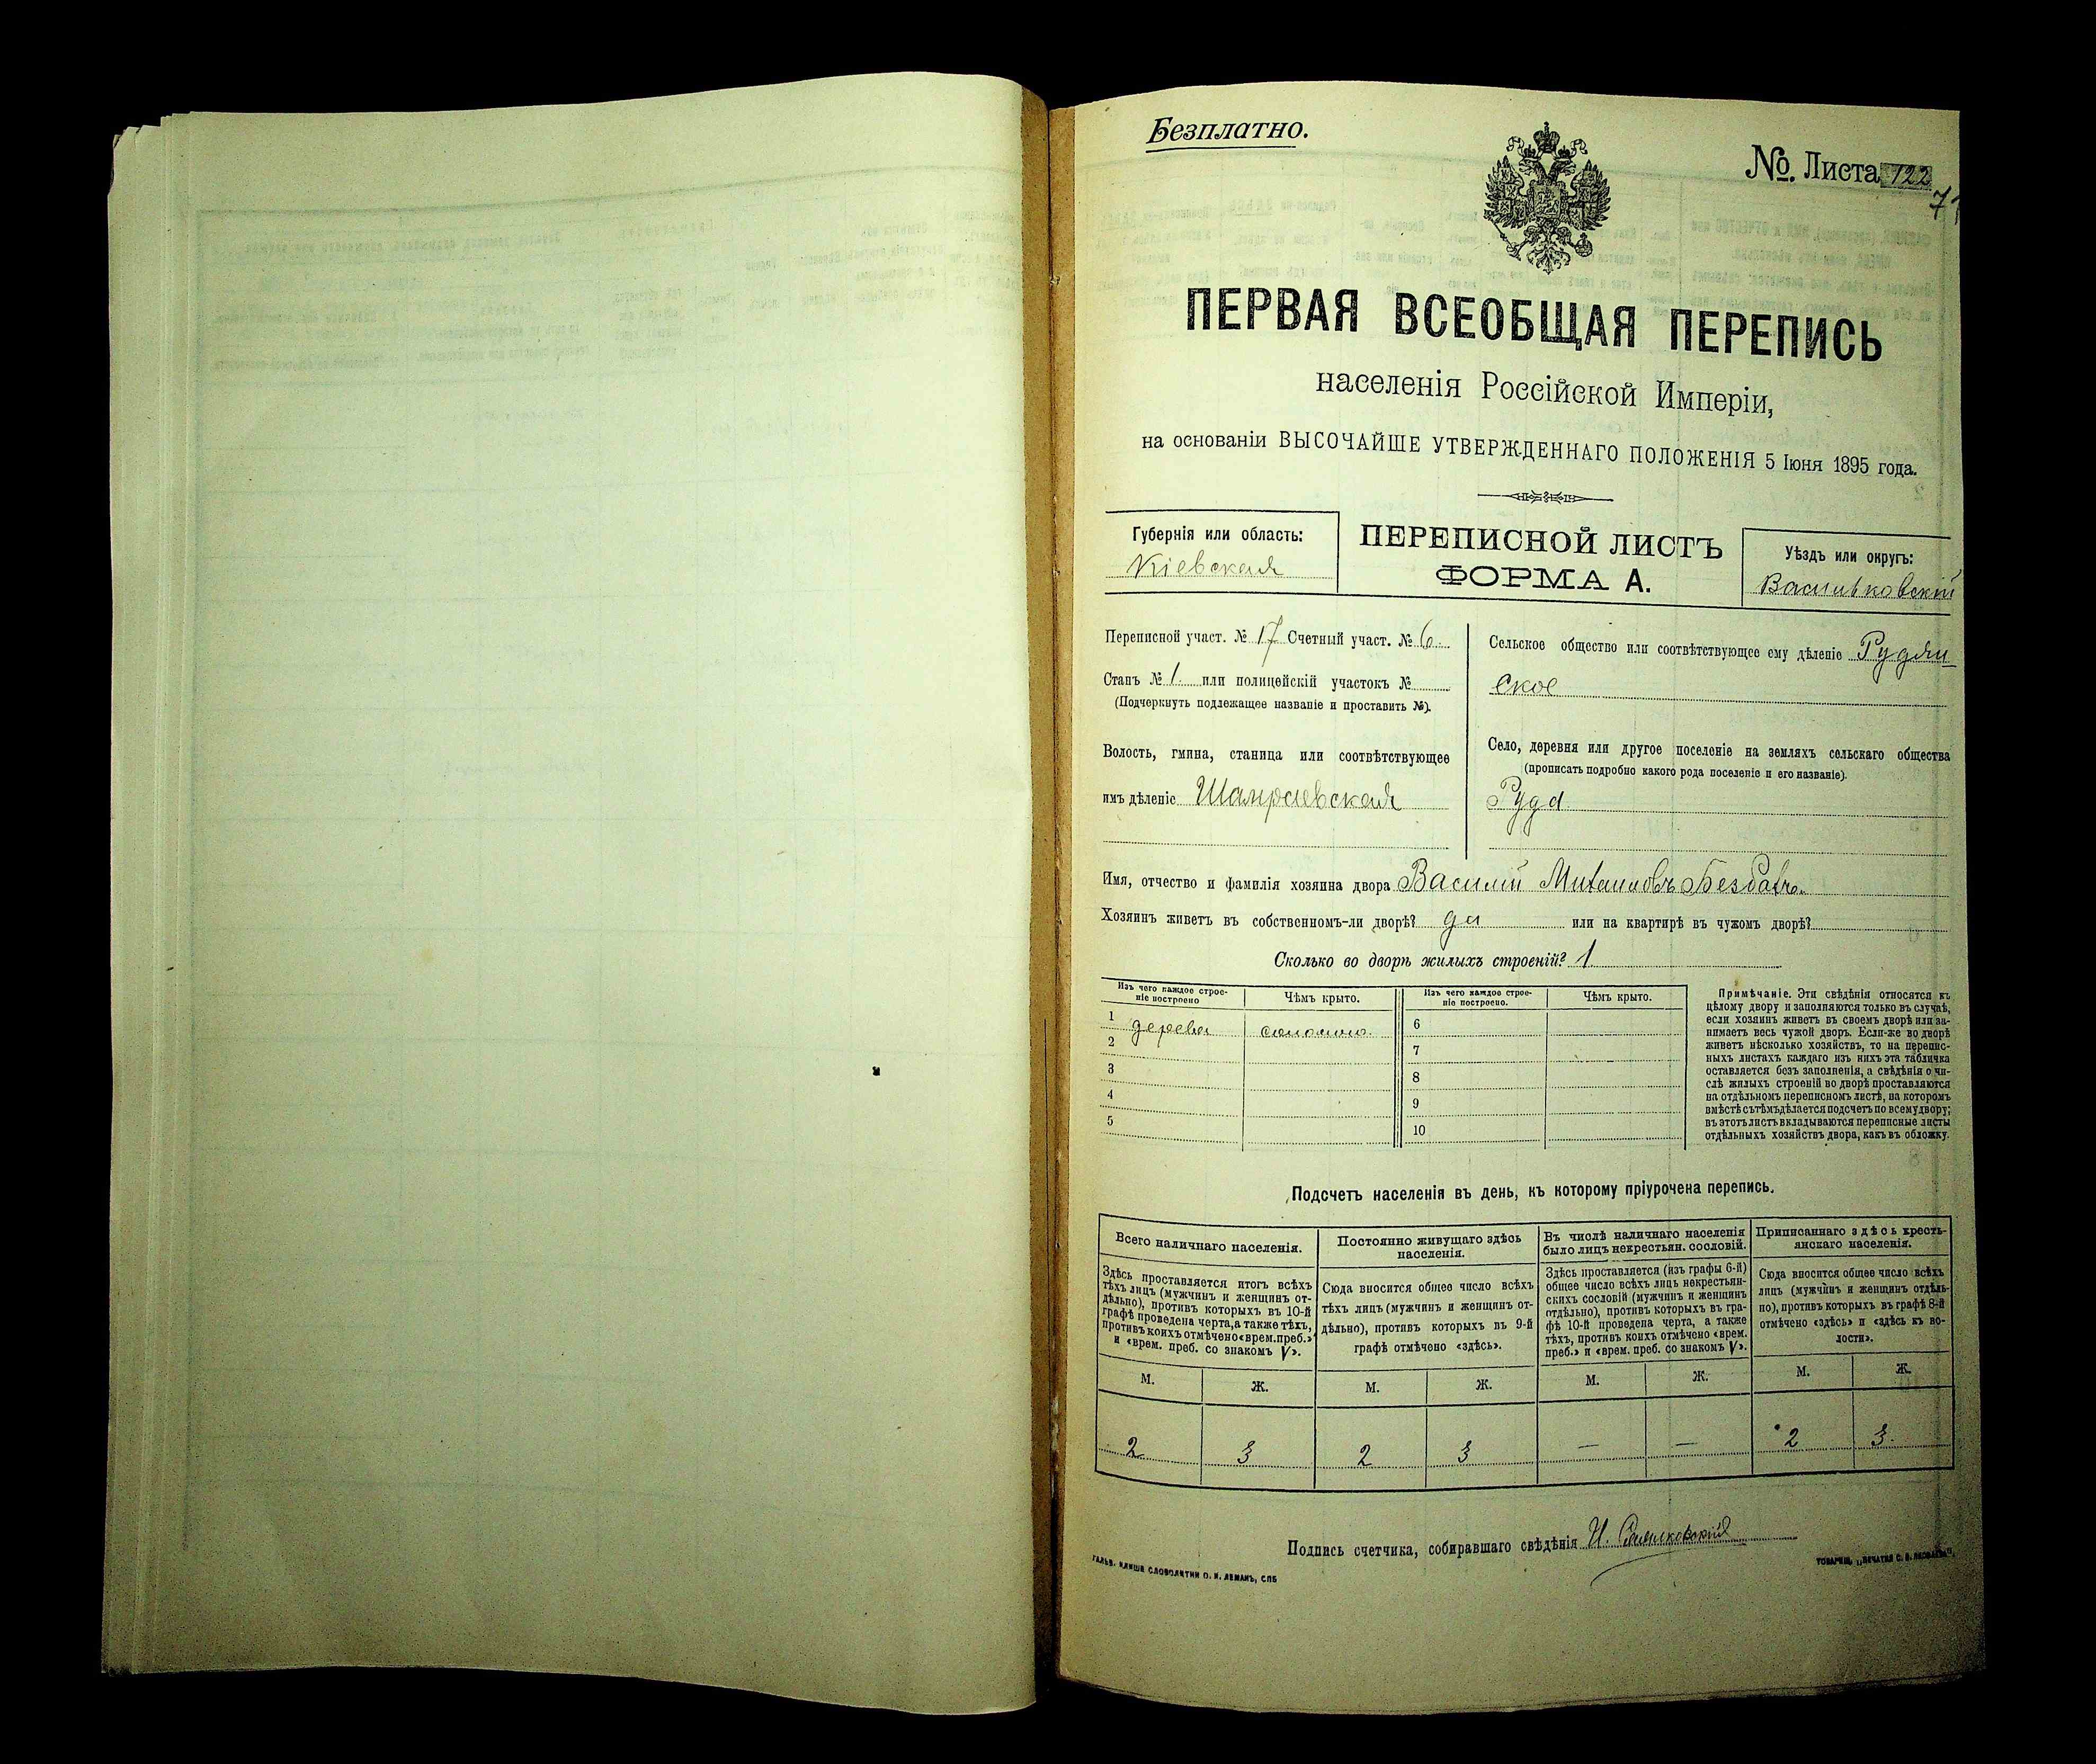 Безплатно.
№. Листа 122
ПЕРВАЯ ВСЕОБЩАЯ ПЕРЕПИСЬ
населенія Россійской Имперіи,
на основаніи ВЫСОЧАЙШЕ УТВЕРЖДЕННАГО ПОЛОЖЕНІЯ 5 Іюня 1895 года.
Губернія или область:
Кіевская
ПЕРЕПИСНОЙ ЛИСТЪ
ФОРМА А.
Уѣздъ или округъ:
Васильковскій
Переписной участ. № 17 Счетный участ. № 6.
Станъ № 1. или полицейскій участокъ №
(Подчеркнуть подлежащее названіе и проставить №).
Волость, гмина, станица или соотвѣтствующее
имъ дѣленіе Шамраевская
Сельское общество или соотвѣтствующее ему дѣленіе Рудян-
ское
Село, деревня или другое поселеніе на земляхъ сельскаго общества
(прописать подробно какого рода поселеніе и его названіе).
Руда
Имя, отчество и фамилія хозяина двора Василій
Хозяинъ живетъ въ собственномъ-ли дворѣ? да или на квартирѣ въ чужомъ дворѣ?
Сколько во дворѣ жилыхъ строеній? 1
Изъ чего каждое строе-
ніе построено
Чѣмъ крыто.
Изъ чего каждое строе-
ніе построено.
Чѣмъ крыто.
1 дерева соломою
2
3
4
5
6
7
8
9
10
Примѣчаніе. Эти свѣдѣнія относятся къ
цѣлому двору и заполняются только въ случаѣ,
если хозяинъ живетъ въ своемъ дворѣ или за-
нимаетъ весь чужой дворъ. Если-же во дворѣ
живетъ нѣсколько хозяйствъ, то на перепис-
ныхъ листахъ каждаго изъ нихъ эта табличка
оставляется безъ заполненія, а свѣдѣнія о чи-
слѣ жилыхъ строеній во дворѣ проставляются
на отдѣльномъ переписномъ листѣ, на которомъ
вмѣстѣ съ тѣмъ дѣлается подсчетъ по всему двору;
въ этотъ листъ вкладываются переписные листы
отдѣльныхъ хозяйствъ двора, какъ въ обложку.
Подсчетъ населенія въ день, къ которому пріурочена перепись.
Всего наличнаго населенія.
Здѣсь проставляется итогъ всѣхъ
тѣхъ лицъ (мужчинъ и женщинъ от-
дѣльно), противъ которыхъ въ 10-й
графѣ проведена черта, а также тѣхъ,
противъ коихъ отмѣчено «врем. преб.»
и «врем. преб. со знакомъ V».
Постоянно живущаго здѣсь
населенія.
Сюда вносится общее число всѣхъ
тѣхъ лицъ (мужчинъ и женщинъ от-
дѣльно), противъ которыхъ въ 9-й
графѣ отмѣчено «здѣсь».
Въ числѣ наличнаго населенія
было лицъ некрестьян. сословій.
Здѣсь проставляется (изъ графы 6-й)
общее число всѣхъ лицъ некрестьян-
скихъ сословій (мужчинъ и женщинъ
отдѣльно), противъ которыхъ въ гра-
фѣ 10-й проведена черта, а также
тѣхъ, противъ коихъ отмѣчено «врем.
преб.» и «врем. преб. со знакомъ V».
Приписаннаго здѣсь кресть-
янскаго населенія.
Сюда вносится общее число всѣхъ
лицъ (мужчинъ и женщинъ отдѣль-
но), противъ которыхъ въ графѣ 8-й
отмѣчено «здѣсь» и «здѣсь къ во-
лости».
М. Ж. М. Ж. М. Ж. М. Ж.
2 3 2 3 — — 2 3
Подпись счетчика, собиравшаго свѣдѣнія
ГАЛЬВ. КЛИШЕ СЛОВОЛИТНИ О. И. ЛЕМАНЪ, СПБ
ТОВАРИЩ. „ПЕЧАТНЯ С. П. ЯКОВЛЕВА“.